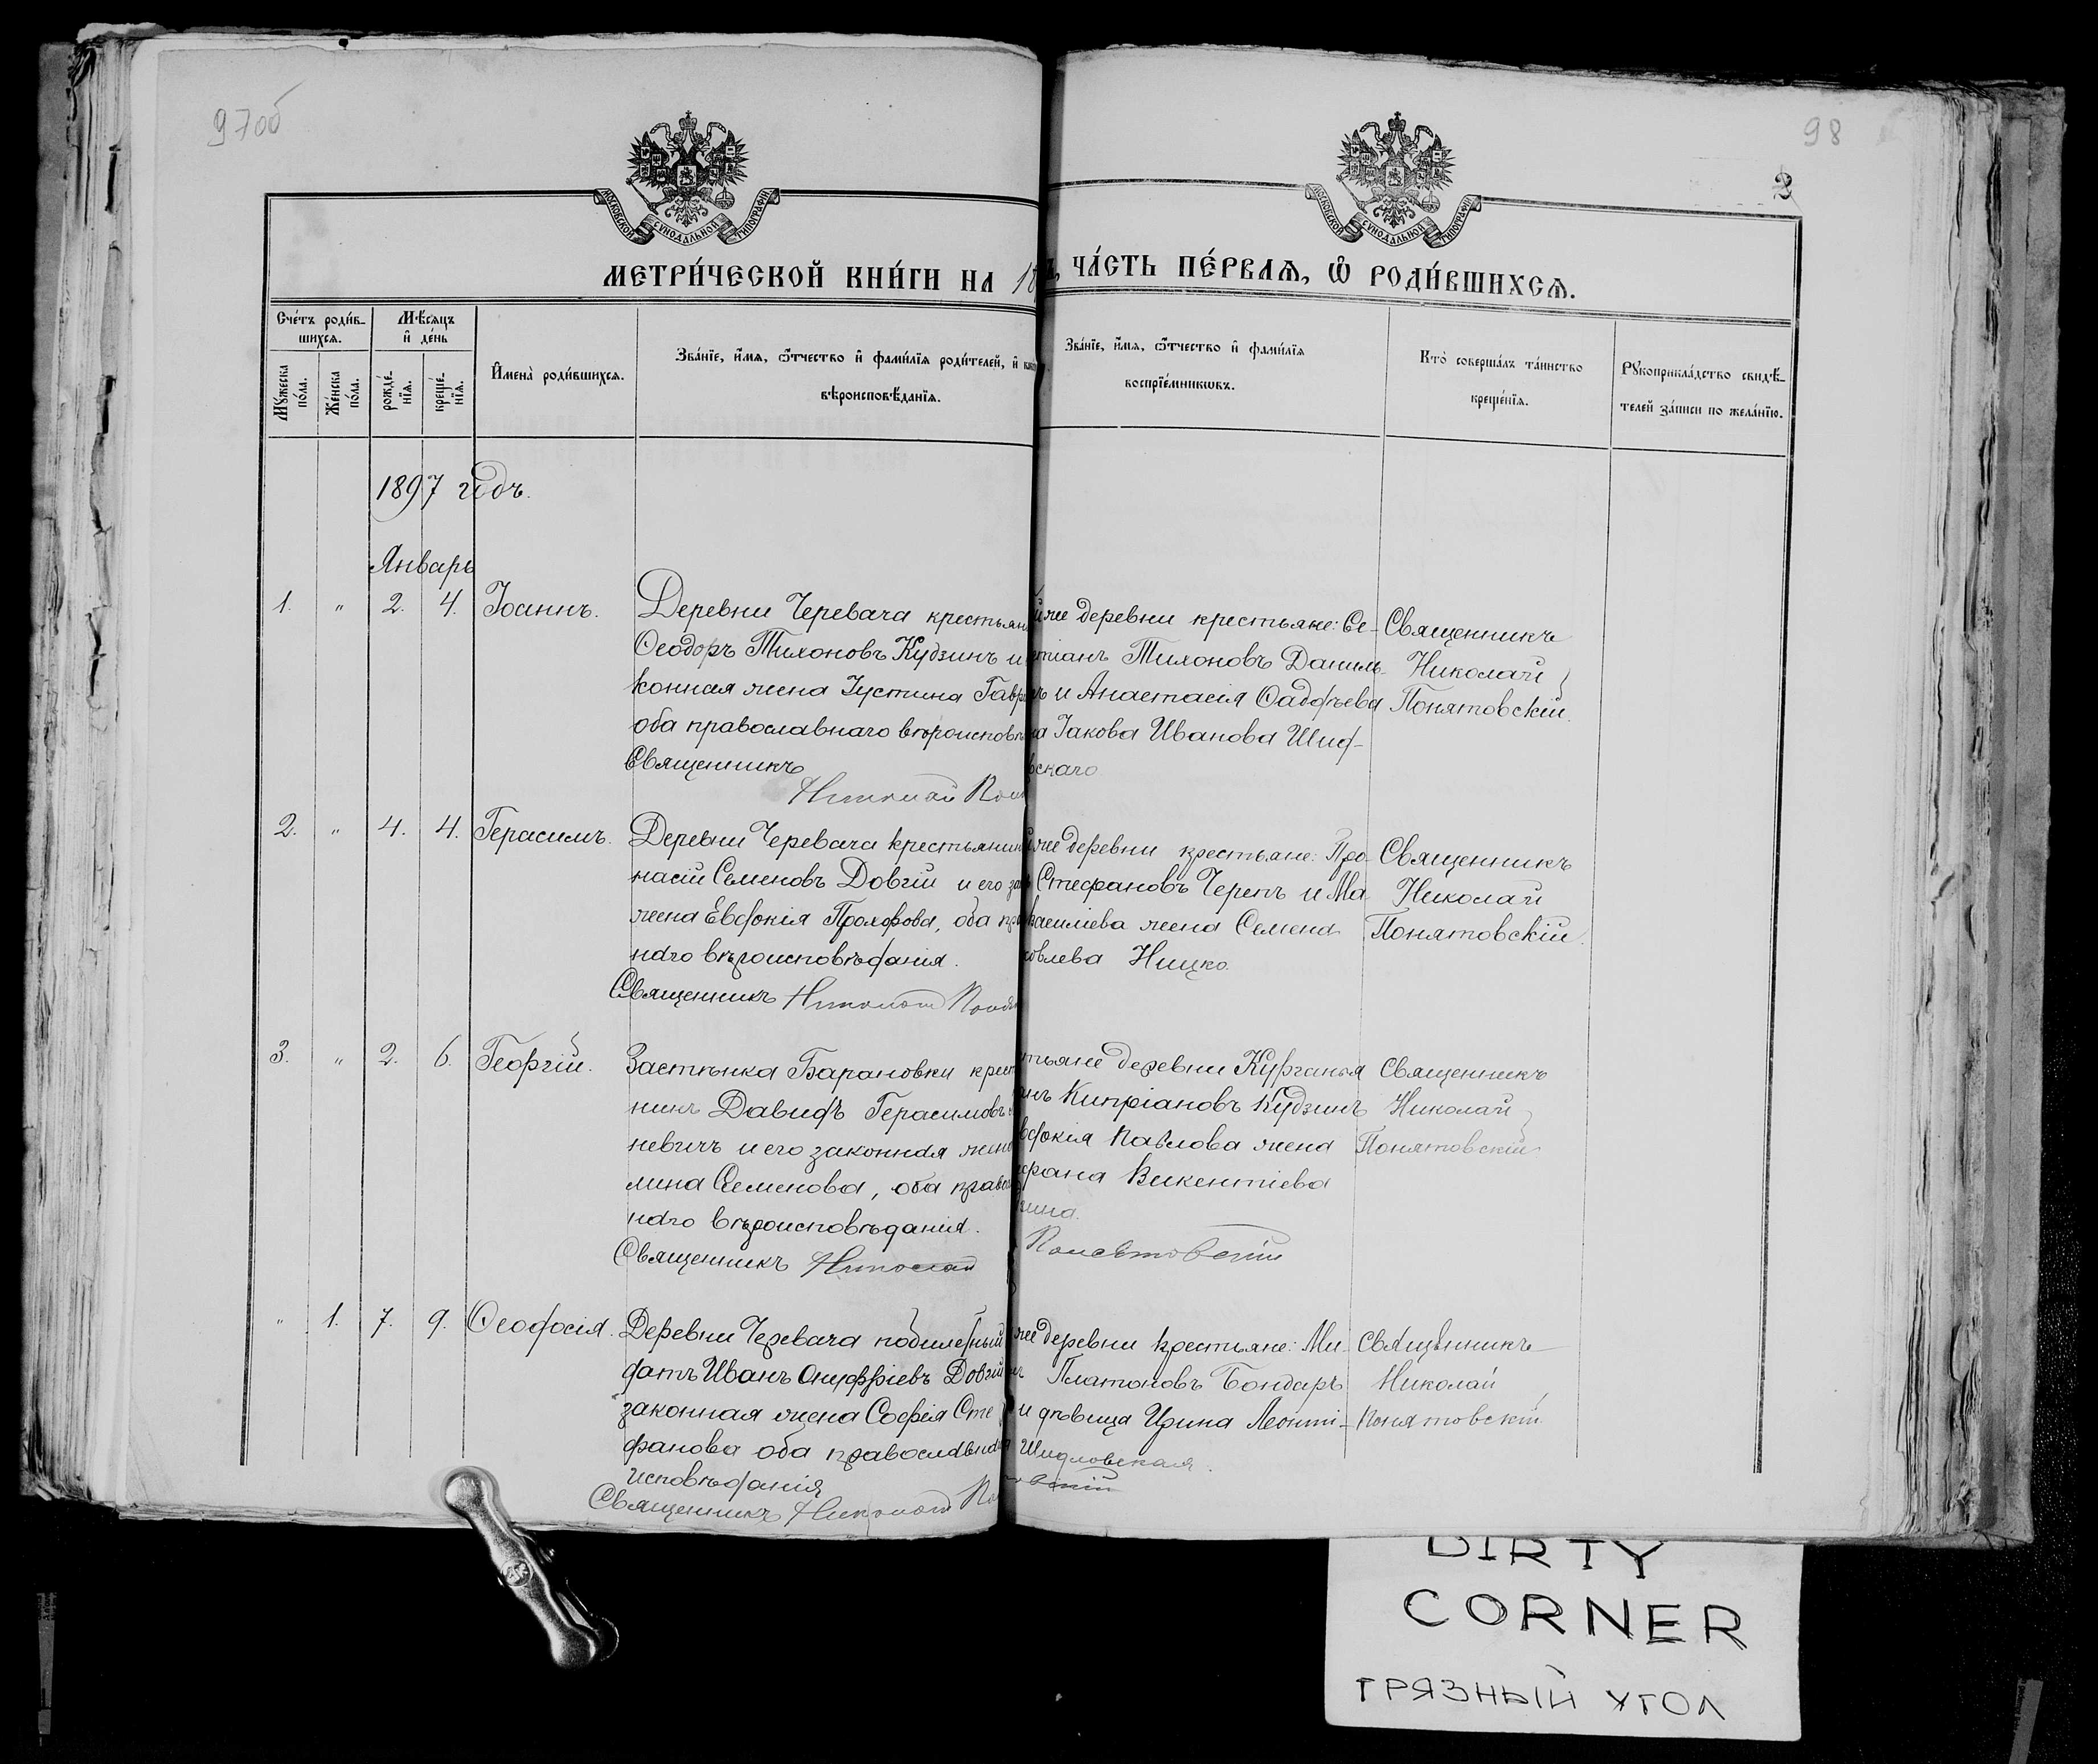 97об
98
2
МОСКОВСКОЙ СѴНОДАЛЬНОЙ ТИПОГРАФІИ
МОСКОВСКОЙ СѴНОДАЛЬНОЙ ТИПОГРАФІИ
МЕТРИ́ЧЕСКОЙ КНИ́ГИ НА 18
ЧА́СТЬ ПЕ́РВАѦ, Ѡ РОДИ́ВШИХСѦ.
Сче́тъ роди́в-
шихсѧ.
Мѣ́сѧцъ
и҆ де́нь
Мꙋ́жеска
по́ла.
Же́нска
по́ла.
рожде́-
нїѧ.
креще́-
нїѧ.
И҆мена̀ роди́вшихсѧ.
Зва́нїе, и҆́мѧ, ѻ҆́тчество и҆ фами́лїѧ роди́телей, и҆
вѣроисповѣ́данїѧ.
Зва́нїе, и҆́мѧ, ѻ҆́тчество и҆ фами́лїѧ
воспрїе́мникѡвъ.
Кто̀ соверша́лъ та́инство
креще́нїѧ.
Рꙋкоприкла́дство свидѣ́-
телей за́писи по жела́нїю.
1897 годъ.
Январь
1. " 2. 4. Іоаннъ.
Деревни Черевача крестьян
Ѳеодоръ Тихоновъ Кудзинъ и
конная жена Іустина Гавр
оба православнаго вѣроисповѣ
Священникъ
Николай Пон
йже деревни крестьяне: Се-
стіанъ Тихоновъ Даниль
ъ и Анастасія Ѳаддѣева
на Іакова Иванова Шид-
вскаго
Священникъ
Николай
Понятовскій.
2. " 4. 4. Герасимъ.
Деревни Черевача крестьянин
насій Семеновъ Довгій и его зак
жена Евдокія Прохорова, оба пра
наго вѣроисповѣданія.
Священникъ Николай Понят
же деревни крестьяне: Про-
Стефановъ Черепъ и Ма
Василіева жена Семена
овлева Ницко.
Священникъ
Николай
Понятовскій.
3. " 2. 6. Георгій.
Застѣнка Барановки крест
никъ Давидъ Герасимовъ
невичъ и его законная жена
мина Семенова, оба право
наго вѣроисповѣданія.
Священникъ Николай
тьяне деревни Курганья
инъ Кипріановъ Кудзинъ
вдокія Павлова жена
фана Викентіева
зина.
Понятовскій
Священникъ
Николай
Понятовскій
" 1. 7. 9. Ѳеодосія.
Деревни Черевача побилетный
датъ Иванъ Онуфріевъ Довгій
законная жена Софія Сте
фанова оба православнаго
исповѣданія
Священникъ Николай По
же деревни крестьяне: Ми-
Платоновъ Бондарь
и дѣвица Ирина Леонті-
Шидловская.
товскій
Священникъ
Николай
Понятовскій
DIRTY
CORNER
ГРЯЗНЫЙ УГОЛ